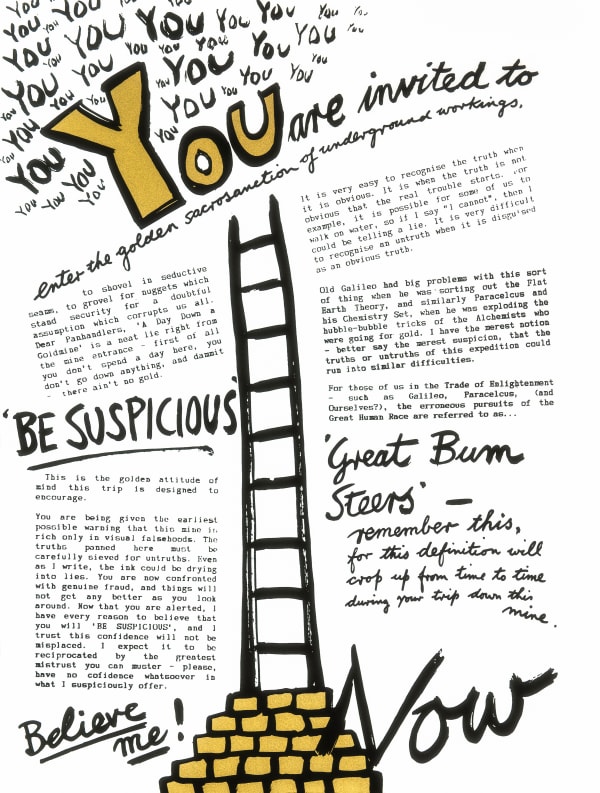 YOU are invited to
enter the golden sacrosanction of underground workings,
to shovel in seductive
seams, to grovel for nuggets which
stand security for a doubtful
assumption which corrupts us all.
Dear Panhandlers, 'A Day Down a
Goldmine' is a neat lie right from
the mine entrance - first of all
you don't spend a day here, you
don't go down anything, and damnit
- there ain't no gold.
'BE SUSPICIOUS'
This is the golden attitude of
mind this trip is designed to
encourage.
You are being given the earliest
possible warning that this mine is
rich only in visual falsehoods. The
truths panned here must be
carefully sieved for untruths. Even
as I write, the ink could be drying
into lies. You are now confronted
with genuine fraud, and things will
not get any better as you look
around. Now that you are alerted, I
have every reason to believe that
you will 'BE SUSPICIOUS', and I
trust this confidence will not be
misplaced. I expect it to be
reciprocated by the greatest
mistrust you can muster - please,
have no cofidence whatsoever in
what I suspiciously offer.
Believe
me!
It is very easy to recognise the truth when
it is obvious. It is when the truth is not
obvious that the real trouble starts. For
example, it is possible for some of us to
walk on water, so if I say "I cannot", then I
could be telling a lie. It is very difficult
to recognise an untruth when it is disguised
as an obvious truth.
Old Galileo had big problems with this sort
of thing when he was sorting out the Flat
Earth Theory, and similarly Paracelcus and
his Chemistry Set, when he was exploding the
hubble-bubble tricks of the Alchemists who
were going for gold. I have the merest notion
- better say the merest suspicion, that the
truths or untruths of this expedition could
run into similar difficulties.
For those of us in the Trade of Enlightenment
- such as Galileo, Paracelcus, (and
Ourselves?), the erroneous pursuits of the
Great Human Race are referred to as...
'Great Bum
Steers' —
remember this,
for this definition will
crop up from time to time
during your trip down this
mine.
Now